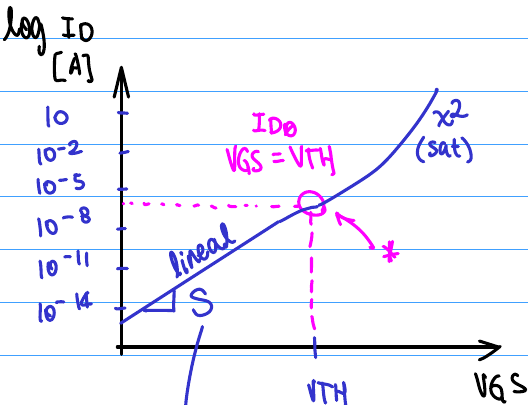 log ID
[A]
10
10⁻²
10⁻⁵
10⁻⁸
10⁻¹¹
10⁻¹⁴
ID0
VGS = VTH
x²
(sat)
lineal
*
S
VTH
VGS